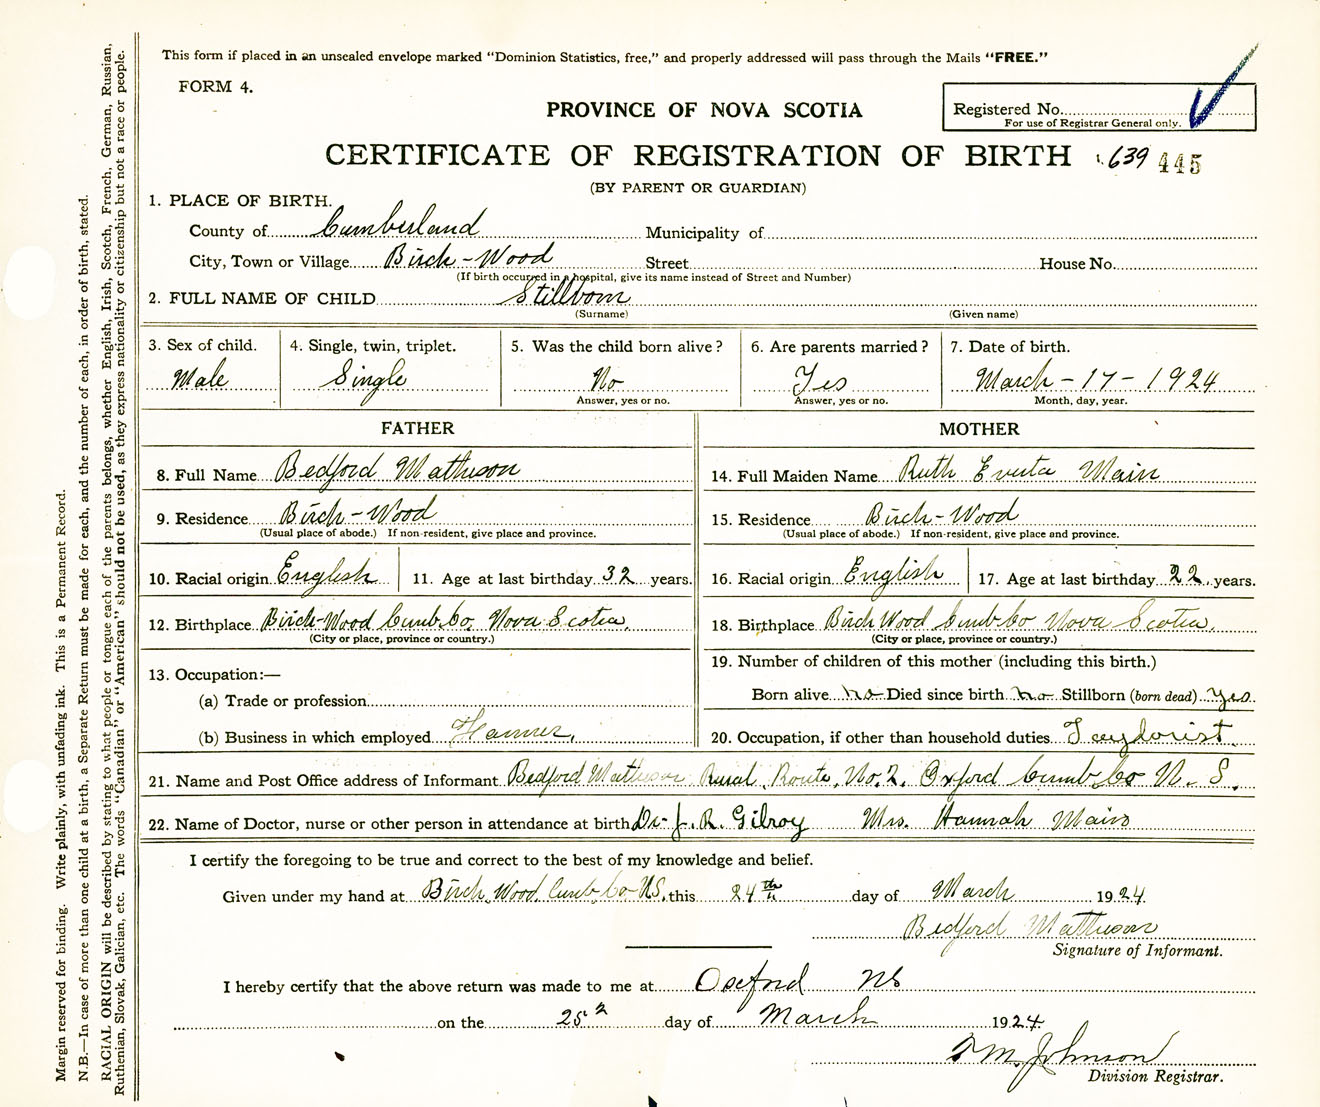 This form if placed in an unsealed envelope marked "Dominion Statistics, free," and properly addressed will pass through the Mails "FREE."
FORM 4.
PROVINCE OF NOVA SCOTIA
Registered No.
For use of Registrar General only.
CERTIFICATE OF REGISTRATION OF BIRTH 639 445
(BY PARENT OR GUARDIAN)
1. PLACE OF BIRTH.
County of Cumberland Municipality of
City, Town or Village Birch-Wood Street House No.
(If birth occurred in a hospital, give its name instead of Street and Number)
2. FULL NAME OF CHILD Stillborn
(Surname) (Given name)
3. Sex of child. 4. Single, twin, triplet. 5. Was the child born alive? 6. Are parents married? 7. Date of birth.
Male Single No Yes March-17-1924
Answer, yes or no. Answer, yes or no. Month, day, year.
FATHER MOTHER
8. Full Name Bedford Matheson 14. Full Maiden Name Ruth Evuta Main
9. Residence Birch-Wood 15. Residence Birch-Wood
(Usual place of abode.) If non-resident, give place and province. (Usual place of abode.) If non-resident, give place and province.
10. Racial origin English 11. Age at last birthday 32 years. 16. Racial origin English 17. Age at last birthday 22 years.
12. Birthplace Birch-Wood Cumb. Co. Nova Scotia. 18. Birthplace Birch Wood Cumb Co Nova Scotia.
(City or place, province or country.) (City or place, province or country.)
19. Number of children of this mother (including this birth.)
13. Occupation:—
Born alive no Died since birth no Stillborn (born dead) yes.
(a) Trade or profession
(b) Business in which employed 20. Occupation, if other than household duties
21. Name and Post Office address of Informant Bedford Matheson Rural Route, No. 2. Oxford Cumb. Co N. S.
22. Name of Doctor, nurse or other person in attendance at birth Dr. J. R. Gilroy Mrs. Hannah Main
I certify the foregoing to be true and correct to the best of my knowledge and belief.
Given under my hand at Birch Wood, Cumb. Co N.S. this 24th day of March 1924.
Bedford Matheson
Signature of Informant.
I hereby certify that the above return was made to me at Oxford NS
on the 25 day of March 1924
M. Johnson
Division Registrar.
Margin reserved for binding. Write plainly, with unfading ink. This is a Permanent Record.
N.B.—In case of more than one child at a birth, a Separate Return must be made for each, and the number of each, in order of birth, stated.
RACIAL ORIGIN will be described by stating to what people or tongue each of the parents belongs, whether English, Irish, Scotch, French, German, Russian,
Ruthenian, Slovak, Galician, etc. The words "Canadian" or "American" should not be used, as they express nationality or citizenship but not a race or people.